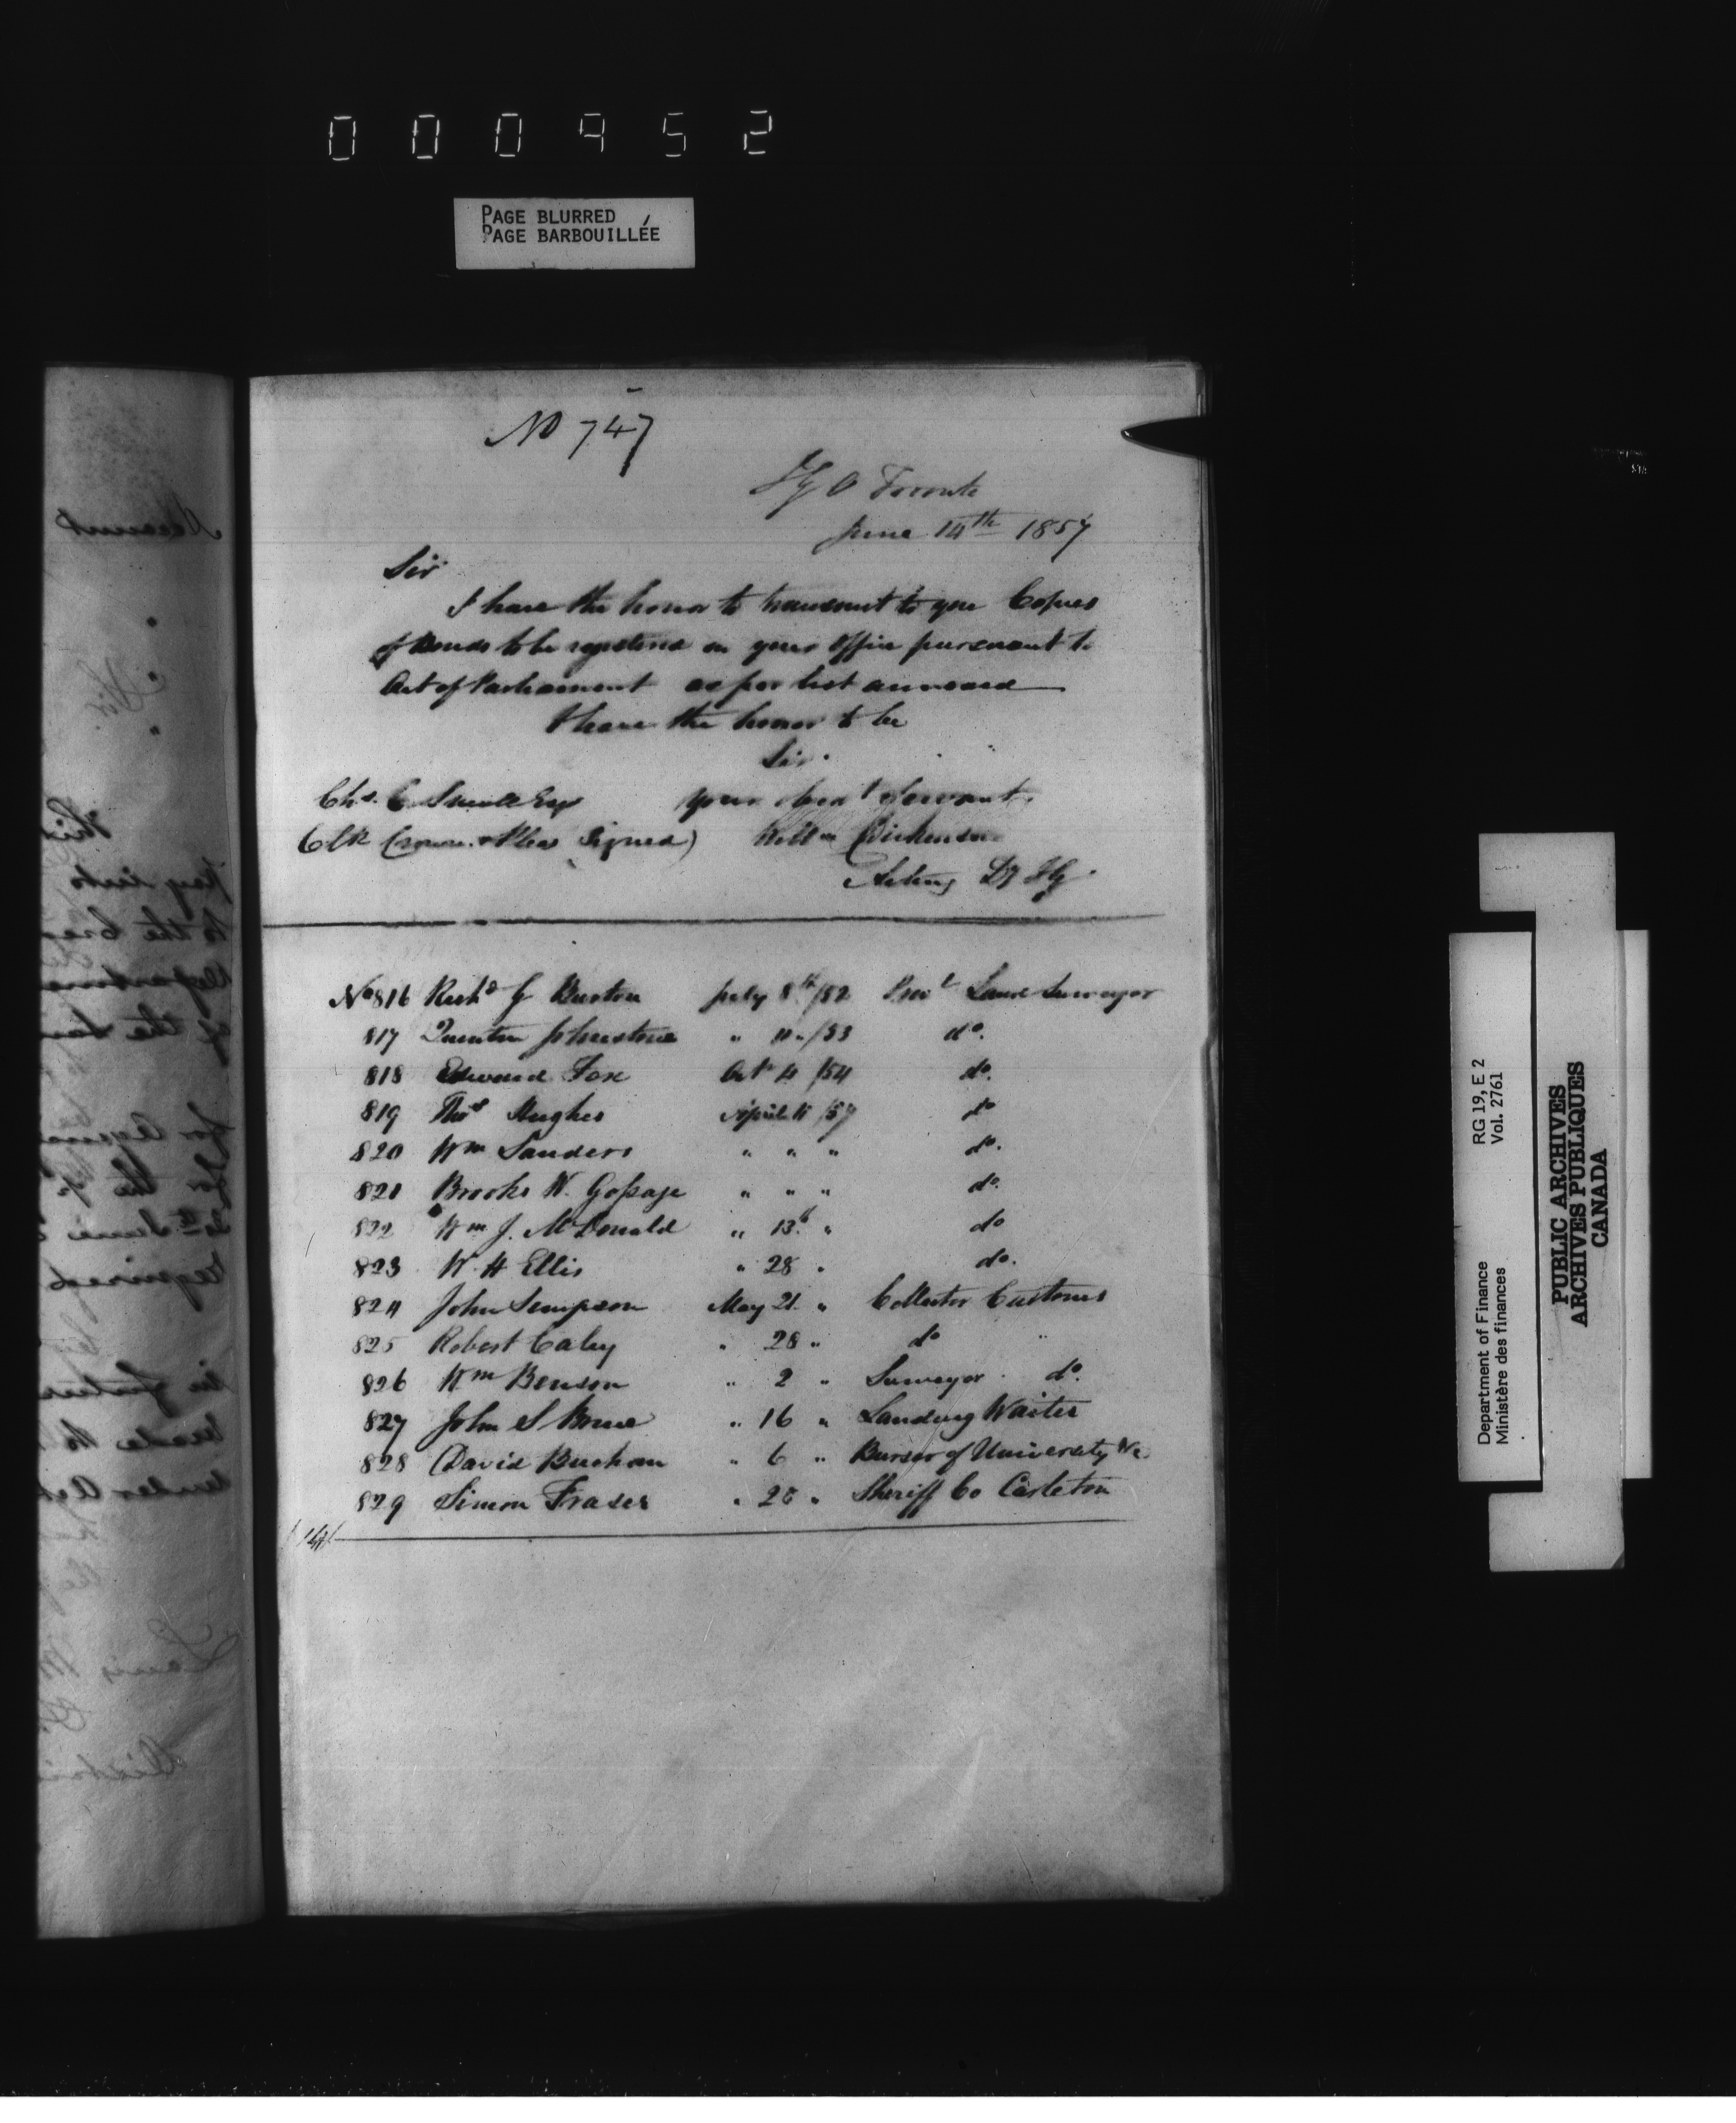 000952
PAGE BLURRED
PAGE BARBOUILLÉE
No 747
I G O Toronto
June 14th 1857
Sir
I have the honor to transmit to you Copies
of Bonds to be registered in your Office pursuant to
Act of Parliament as per list annexed
I have the honor to be
Sir
Your obedt Servant
Chs. C. Small Esq
Clk Crown & Pleas Signed) Willm Dickinson
Acting Dy I G
No 816 Richd G Burton July 8th /52 Provl Land Surveyor
817 Quentin Johnstone " 11 " /53 do.
818 Edward Fox Octr 4 /54 do.
819 Thos Hughes April 11 /57 do
820 Wm Sanders " " " do.
821 Brooks W. Gossage " " " do.
822 Wm J. McDonald " 13th " do
823 W. H Ellis " 28 " do.
824 John Simpson May 21 " Collector Customs
825 Robert Caley " 28 " do "
826 Wm Benson " 2 " Surveyor do.
827 John S " 16 " Landing Waiter
828 David Buchan " 6 " Bursar of University &c
829 Simon Fraser " " Sheriff Co Carleton
Department of Finance RG 19, E 2
Ministère des finances Vol. 2761
PUBLIC ARCHIVES
ARCHIVES PUBLIQUES
CANADA